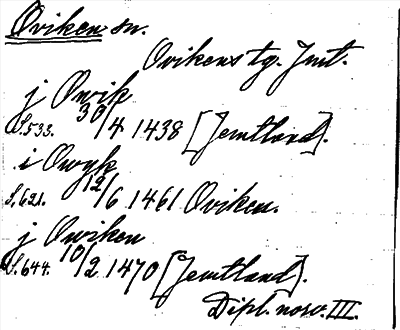 Oviken sn.
Ovikens tg. Jmt.
j Owik
S.533. 30/4 1438 [Jemtland].
i Owyk
S.621. 12/6 1461 Oviken.
j Owiken
S.644. 10/2 1470 [Jemtland].
Dipl. norv. III.